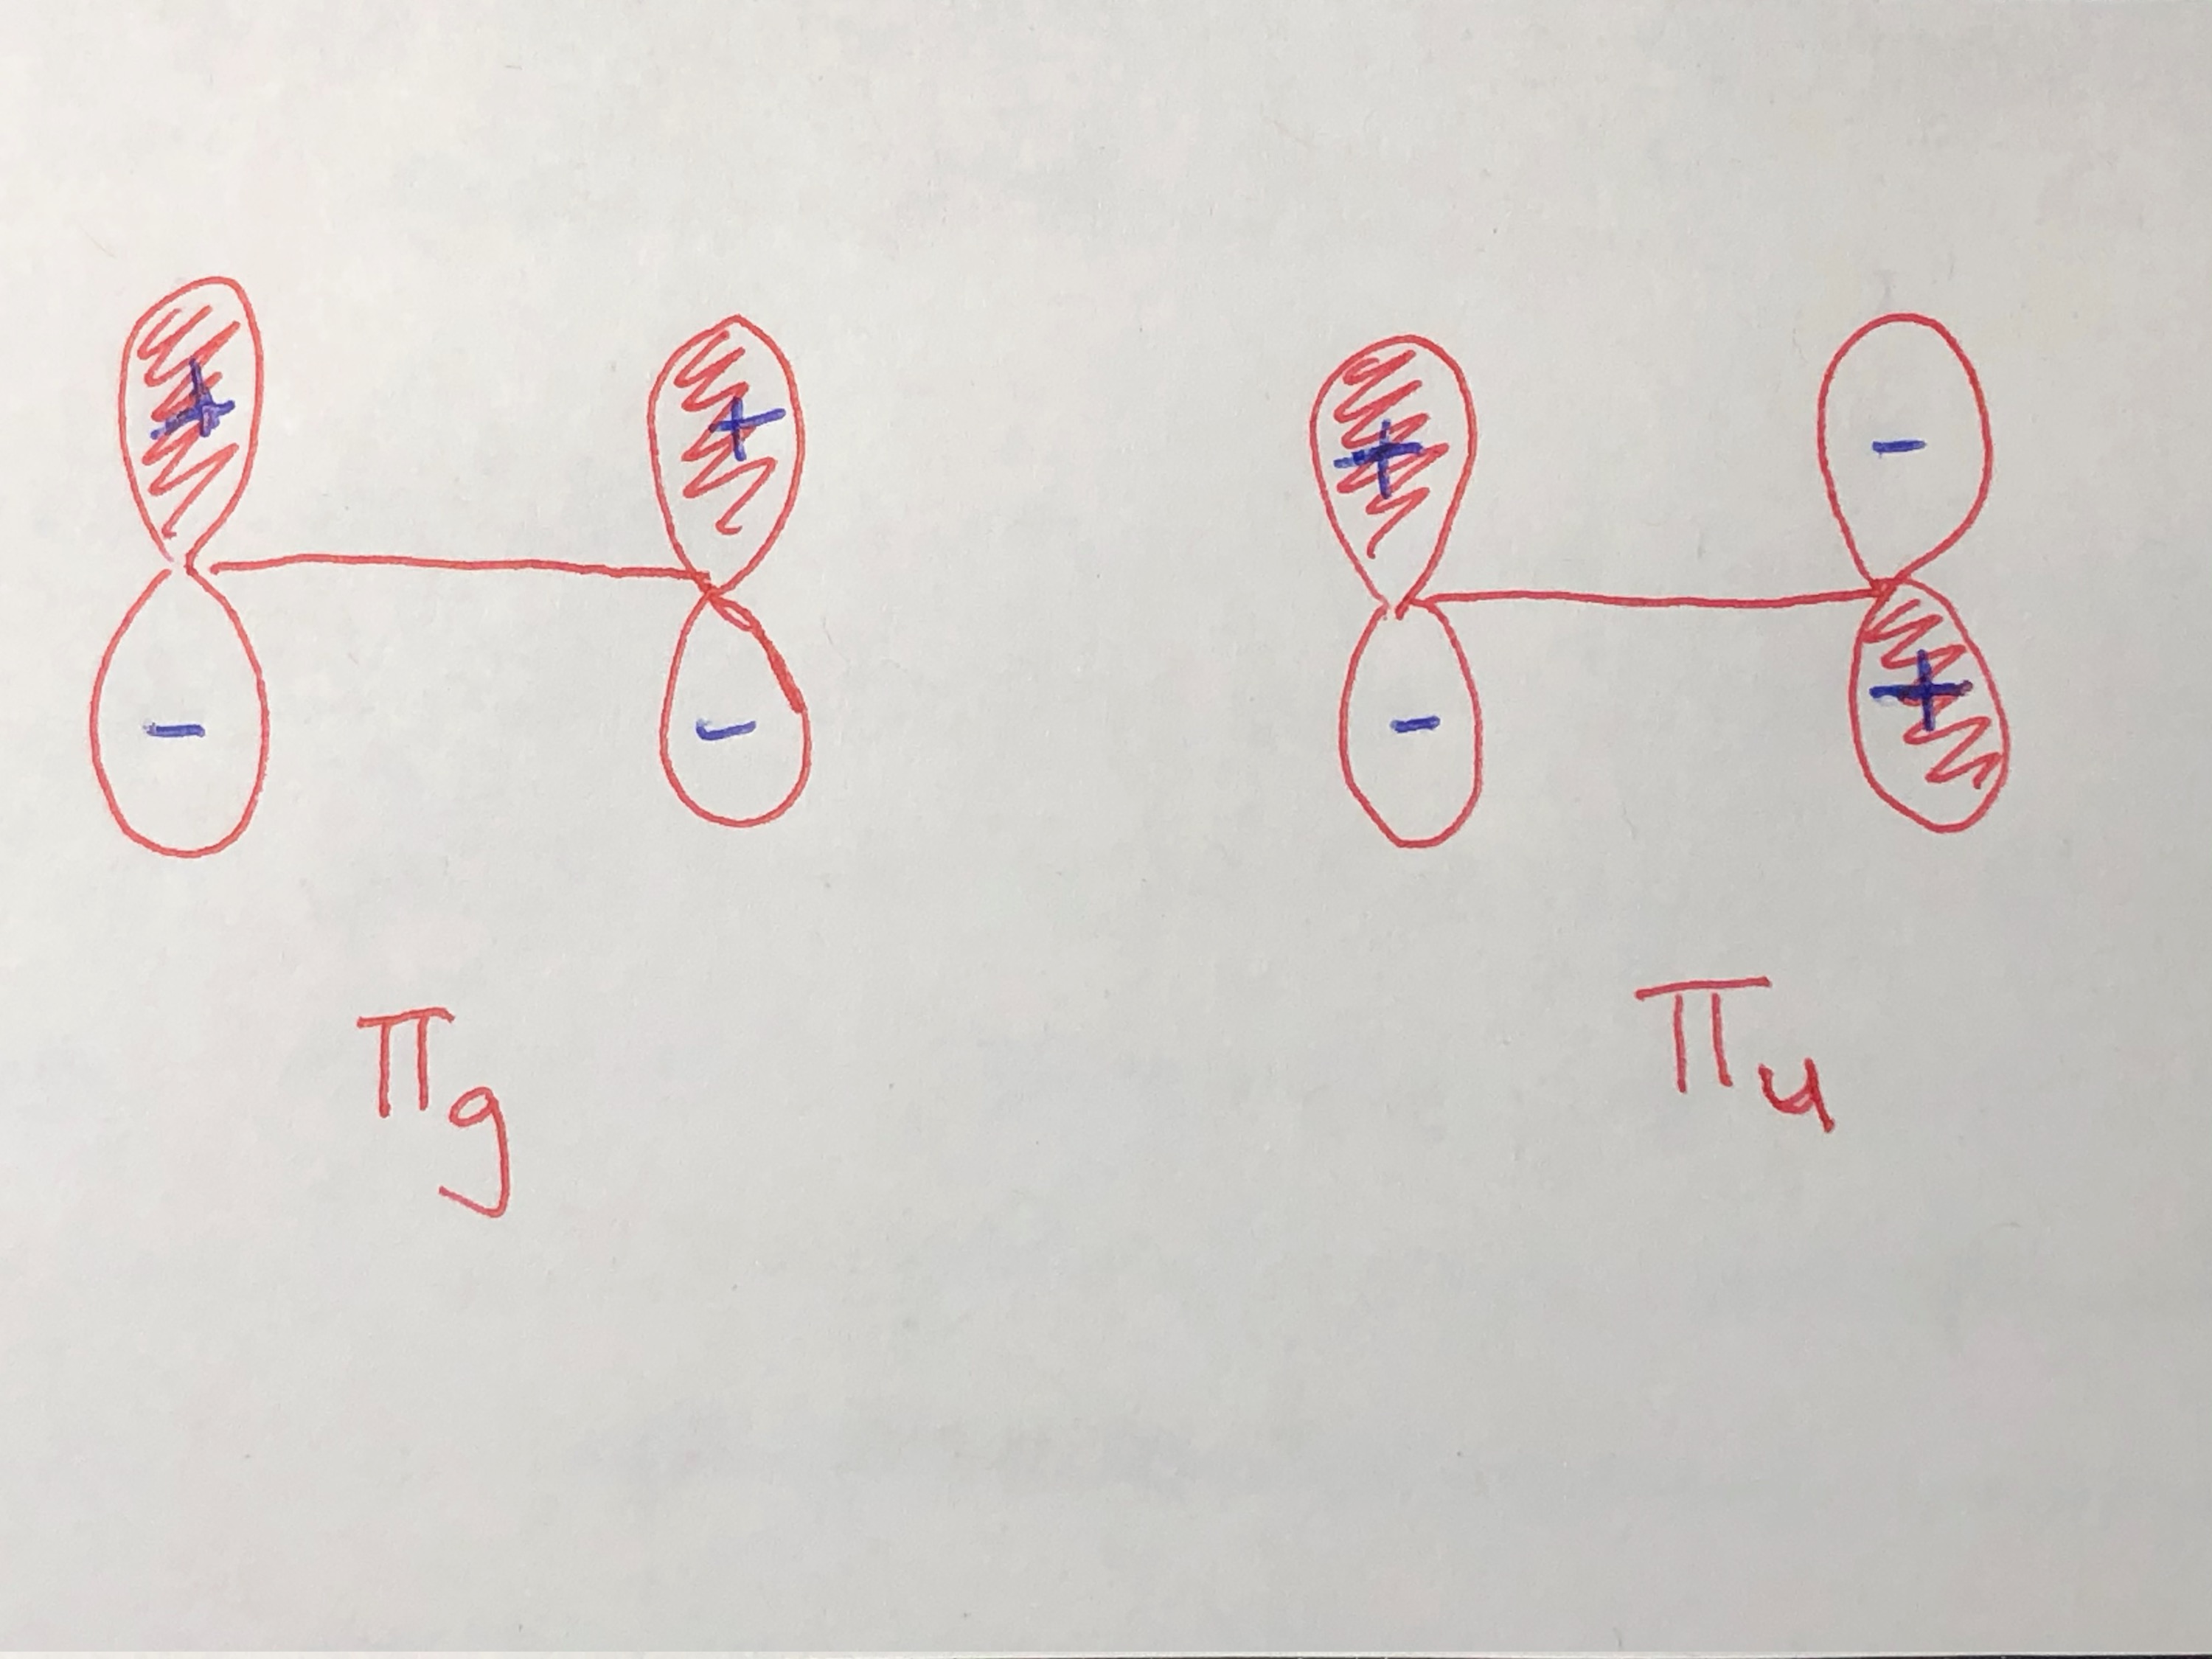 + + + -
- - - +
πg πu